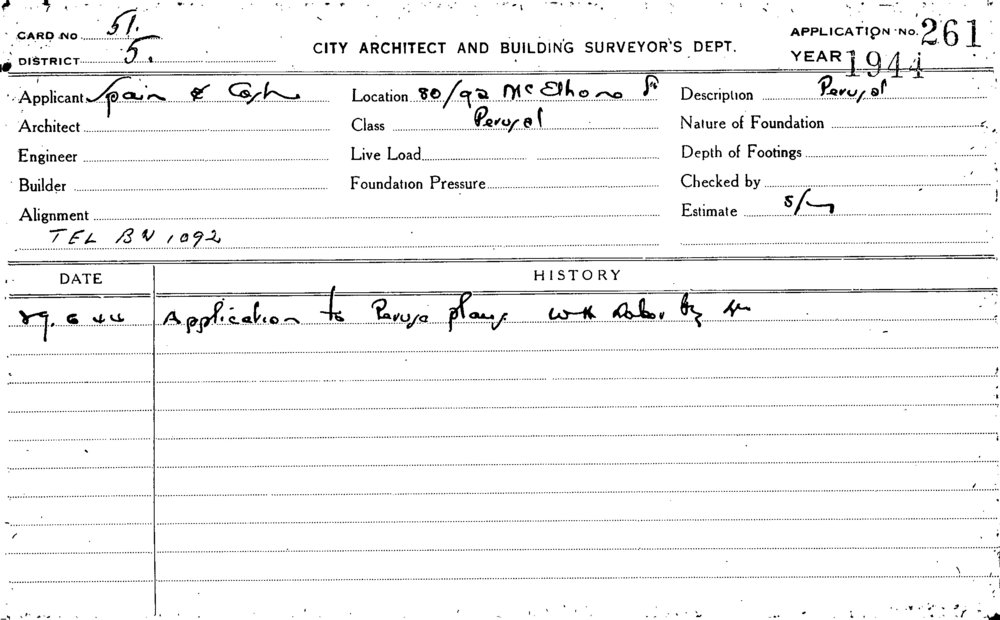 CARD NO 51.
DISTRICT 5.
CITY ARCHITECT AND BUILDING SURVEYOR'S DEPT.
APPLICATION NO. 261
YEAR 1944
Applicant Spain & Cosh Location 80/92 McElhone St Description Perusal
Architect Class Perusal Nature of Foundation
Engineer Live Load Depth of Footings
Builder Foundation Pressure Checked by
Alignment Estimate 5/-
TEL BN 1092
DATE HISTORY
29.6 44 Application to Peruse plans